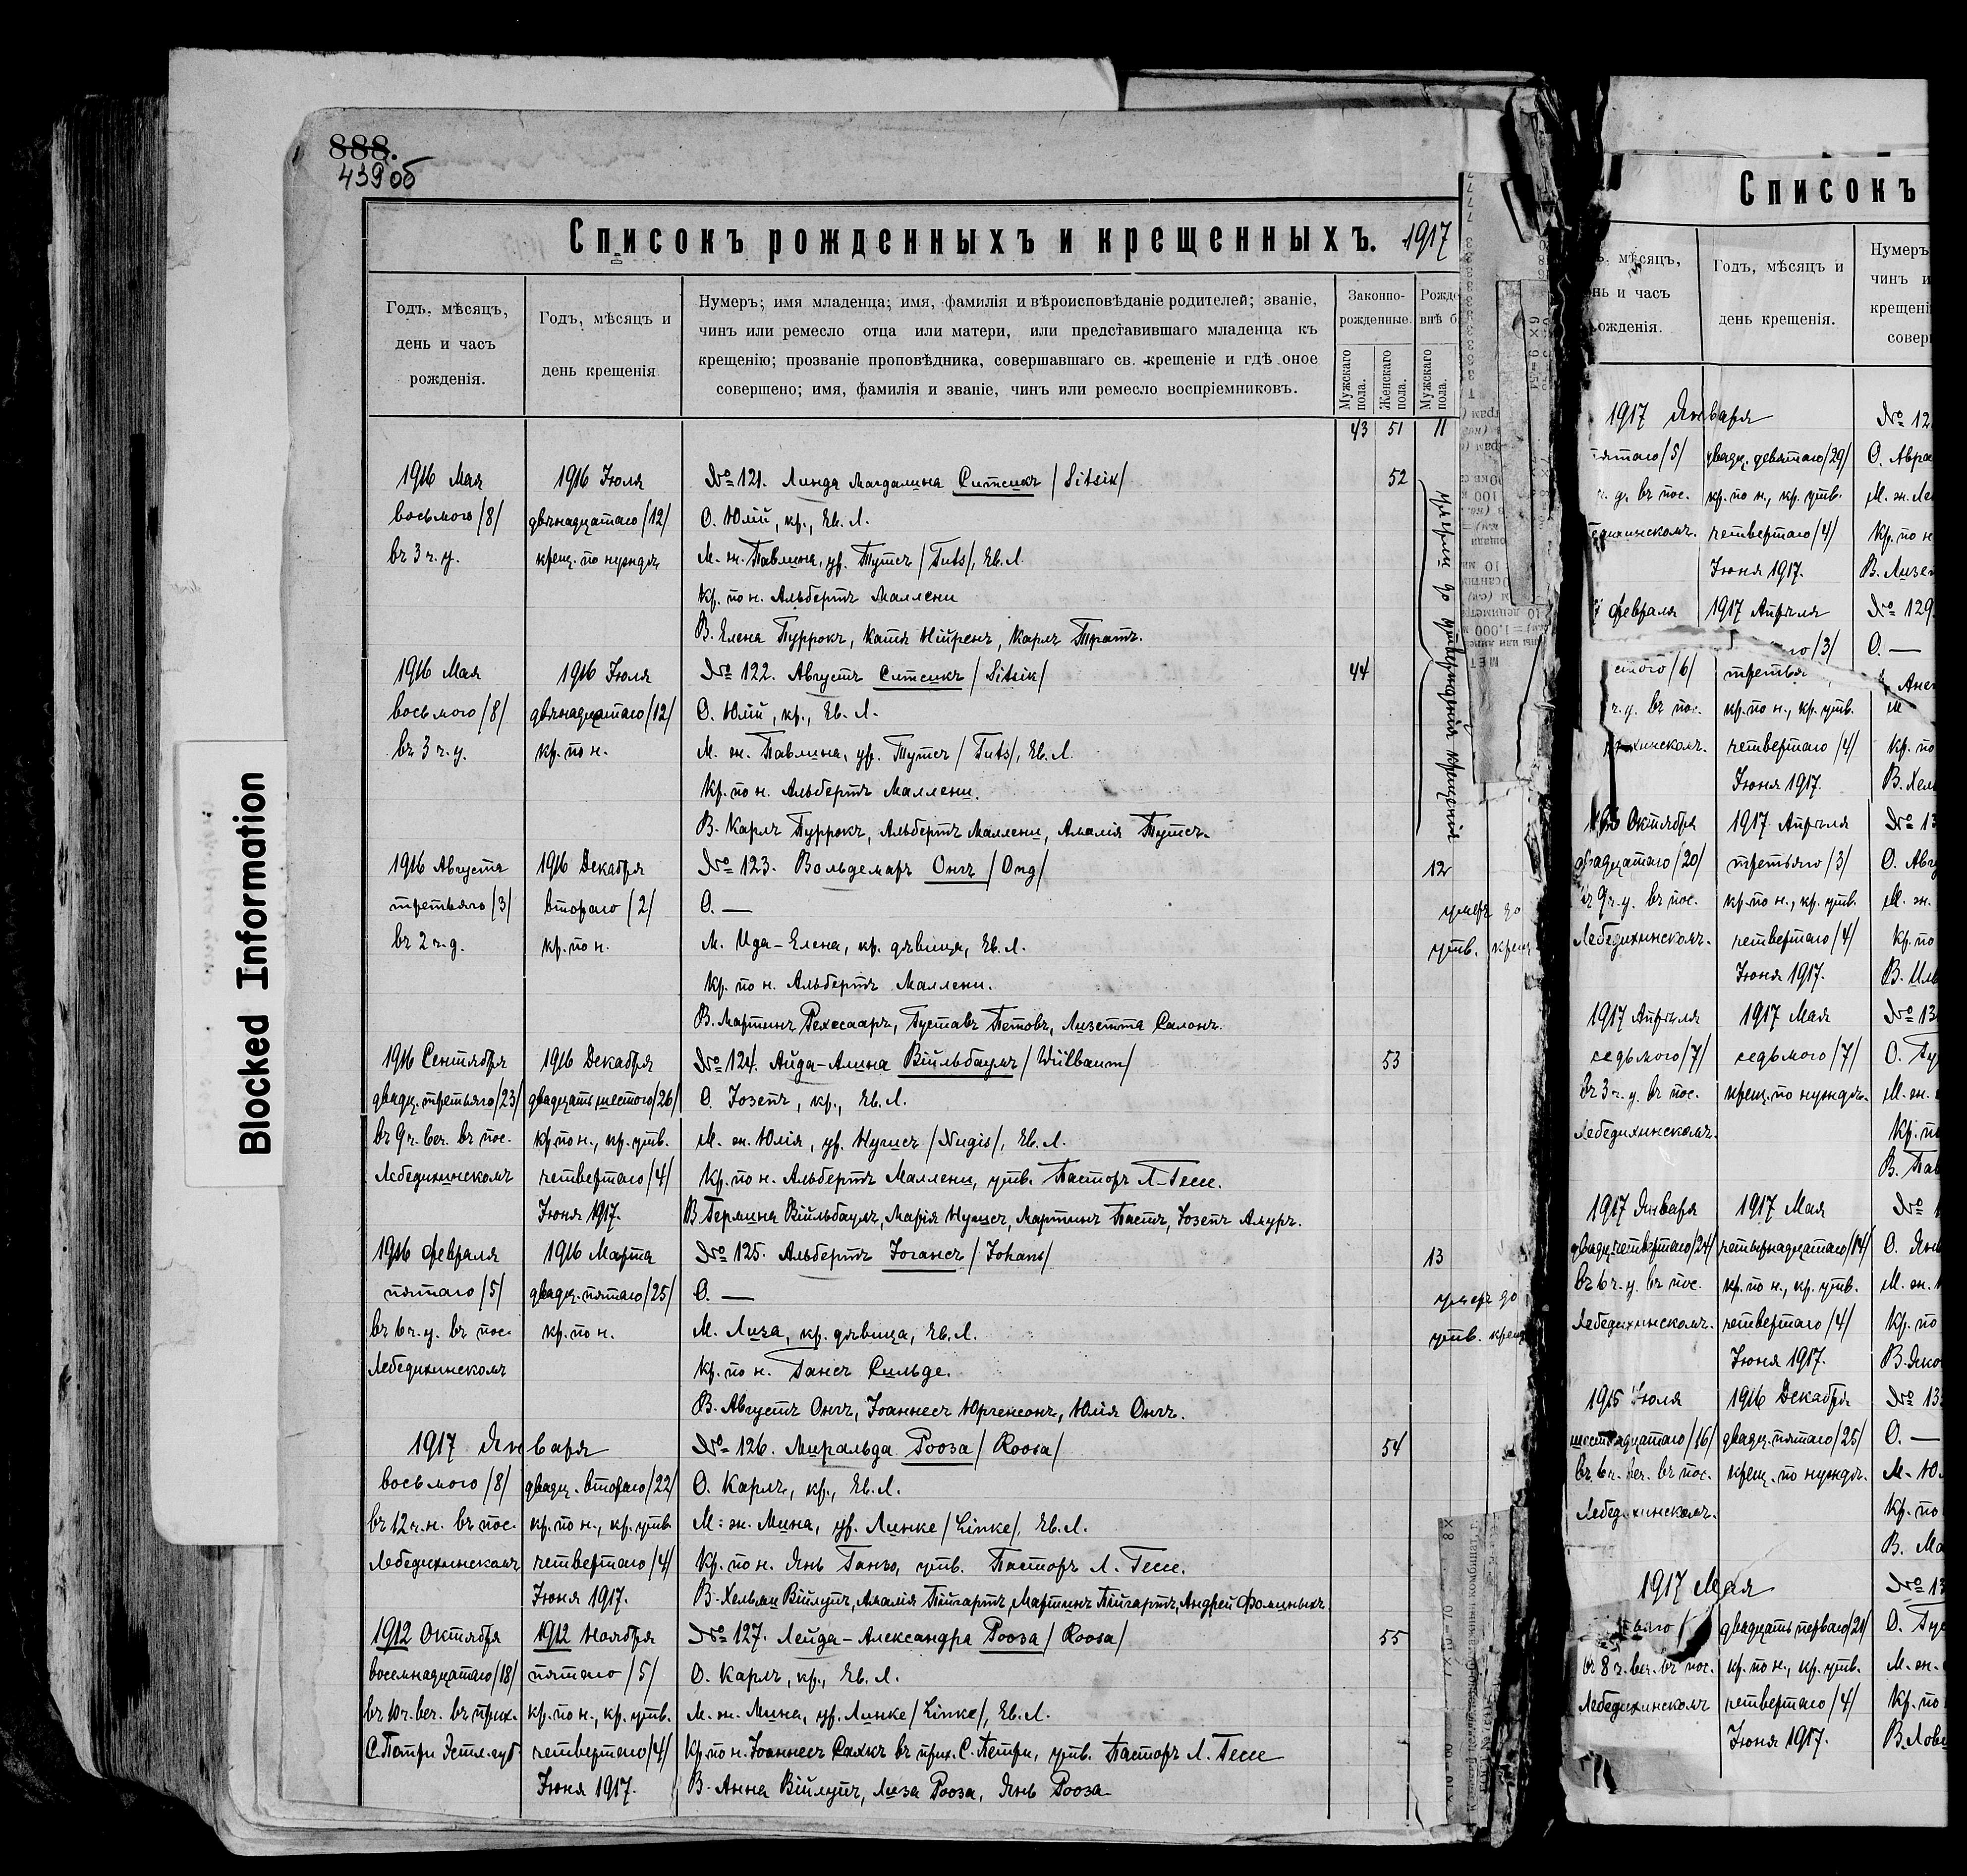 888.
439об
Blocked Information
Списокъ рожденныхъ и крещенныхъ. 1917
Годъ, мѣсяцъ,
день и часъ
рожденія.
Годъ, мѣсяцъ и
день крещенія
Нумеръ; имя младенца; имя, фамилія и вѣроисповѣданіе родителей; званіе,
чинъ или ремесло отца или матери, или представившаго младенца къ
крещенію; прозваніе проповѣдника, совершавшаго св. крещеніе и гдѣ оное
совершено; имя, фамилія и званіе, чинъ или ремесло воспріемниковъ.
Законно-
рожденные.
Мужскаго
пола.
Женскаго
пола.
Рожде
внѣ б
Мужскаго
пола.
43 51 11
1916 Мая
восьмого /8/
въ 3 ч. у.
1916 Іюля
двѣнадцатаго /12/
крещ. по нуждѣ
№ 121. Линда Магдалина Ситсикъ /Sitsik/
О. Юлій, кр., Ев. Л.
М. ж. Павлина, ур. Тутсъ /Tuts/, Ев. Л.
Кр. по н. Альбертъ Маллени
В. Елена Пуррокъ, Катя Нійренъ, Карлъ Тратъ.
52
умерли до утвержденія крещенія
1916 Мая
восьмого /8/
въ 3 ч. у.
1916 Іюля
двѣнадцатаго /12/
кр. по н.
№ 122. Августъ Ситсикъ /Sitsik/
О. Юлій, кр., Ев. Л.
М. ж. Павлина, ур. Тутсъ /Tuts/, Ев. Л.
Кр. по н. Альбертъ Маллени.
В. Карлъ Пуррокъ, Альбертъ Маллени, Амалія Тутсъ.
44
1916 Августа
третьяго /3/
въ 2 ч. д.
1916 Декабря
второго /2/
кр. по н.
№ 123. Вольдемаръ Онгъ /Ong/
О. —
М. Ида-Елена, кр. дѣвица, Ев. Л.
Кр. по н. Альбертъ Маллени.
В. Мартинъ Рехесааръ, Густавъ Петовъ, Лизетта Салонъ.
12
умеръ до
утв. крещ
1916 Сентября
двадц. третьяго /23/
въ 9 ч. веч. въ пос.
Лебедихинскомъ
1916 Декабря
двадцать шестого /26/
кр. по н., кр. утв.
четвертаго /4/
Іюня 1917.
№ 124. Айда-Алина Війльбаумъ /Wiilbaum/
О. Іозепъ, кр., Ев. Л.
М. ж. Юлія, ур. Нугисъ /Nugis/, Ев. Л.
Кр. по н. Альбертъ Маллени, утв. Пасторъ Л. Гессе.
В. Гермина Війльбаумъ, Марія Нугисъ, Мартинъ Пастъ, Іозепъ Амуръ.
53
1916 Февраля
пятаго /5/
въ 6 ч. у. въ пос.
Лебедихинскомъ
1916 Марта
двадц. пятаго /25/
кр. по н.
№ 125. Альбертъ Іогансъ /Johans/
О. —
М. Лиза, кр. дѣвица, Ев. Л.
Кр. по н. Гансъ Сильде.
В. Августъ Онгъ, Іоаннесъ Юргенсонъ, Юлія Онгъ.
13
умеръ до
утв. крещ
1917 Января
восьмого /8/
въ 12 ч. н. въ пос.
Лебедихинскомъ
двадц. второго /22/
кр. по н., кр. утв.
четвертаго /4/
Іюня 1917.
№ 126. Миральда Рооза /Roosa/
О. Карлъ, кр., Ев. Л.
М. ж. Мина, ур. Линке /Linke/, Ев. Л.
Кр. по н. Янь Ганзо, утв. Пасторъ Л. Гессе.
В. Хельми Війлупъ, Амалія Пійгартъ, Мартинъ Пійгартъ, Андрей Фоминыхъ
54
1912 Октября
восемнадцатаго /18/
въ 10 ч. веч. въ прих.
С. Петри Эстл. губ.
1912 Ноября
пятаго /5/
кр. по н., кр. утв.
четвертаго /4/
Іюня 1917.
№ 127. Лейда-Александра Рооза /Roosa/
О. Карлъ, кр., Ев. Л.
М. ж. Мина, ур. Линке /Linke/, Ев. Л.
Кр. по н. Іоаннесъ Саккъ въ прих. С. Петри, утв. Пасторъ Л. Гессе
В. Анна Війлупъ, Лиза Рооза, Янь Рооза
55
Списокъ
мѣсяцъ,
нь и часъ
ожденія.
Годъ, мѣсяцъ и
день крещенія.
Нумеръ
чинъ и
крещені
совер
1917 Января
пятаго /5/
ч. д. въ пос.
едихинскомъ.
двадц. девятаго /29/
кр. по н., кр. утв.
четвертаго /4/
Іюня 1917.
№ 12
О. Авра
М. ж. Ле
Кр. по н
В. Лизе
7 Февраля
стого /6/
ч. у. въ пос.
ихинскомъ.
1917 Апрѣля
го /3/
третья
кр. по н., кр. утв.
четвертаго /4/
Іюня 1917.
№ 129
О. —
М
Кр. по
В. Хел
Октября
двадцатаго /20/
въ 9 ч. у. въ пос.
Лебедихинскомъ.
1917 Апрѣля
третьяго /3/
кр. по н., кр. утв.
четвертаго /4/
Іюня 1917.
№ 13
О. Авгу
М. ж.
Кр. по
В. Иль
1917 Апрѣля
седьмого /7/
въ 3 ч. у. въ пос.
Лебедихинскомъ.
1917 Мая
седьмого /7/
крещ. по нуждѣ.
№ 13
О. Гу
М. ж.
Кр. по
В. Пав
1917 Января
двадц. четвертаго /24/
въ 6 ч. у. въ пос.
Лебедихинскомъ.
1917 Мая
четырнадцатаго /14/
кр. по н., кр. утв.
четвертаго /4/
Іюня 1917.
№ 1
О. Янь
М. ж.
Кр. по
В. Яко
1915 Іюля
шестнадцатаго /16/
въ 6 ч. веч. въ пос.
Лебедихинскомъ.
1916 Декабря
двадц. пятаго /25/
крещ. по нуждѣ.
№ 13
О. —
М. Юл
Кр. по
В. Ма
1917 Мая
въ 8 ч. веч. въ пос.
Лебедихинскомъ
двадцать перваго /21/
кр. по н., кр. утв.
четвертаго /4/
Іюня 1917.
№ 13
О. Гус
М. ж.
Кр. по
В. Лови